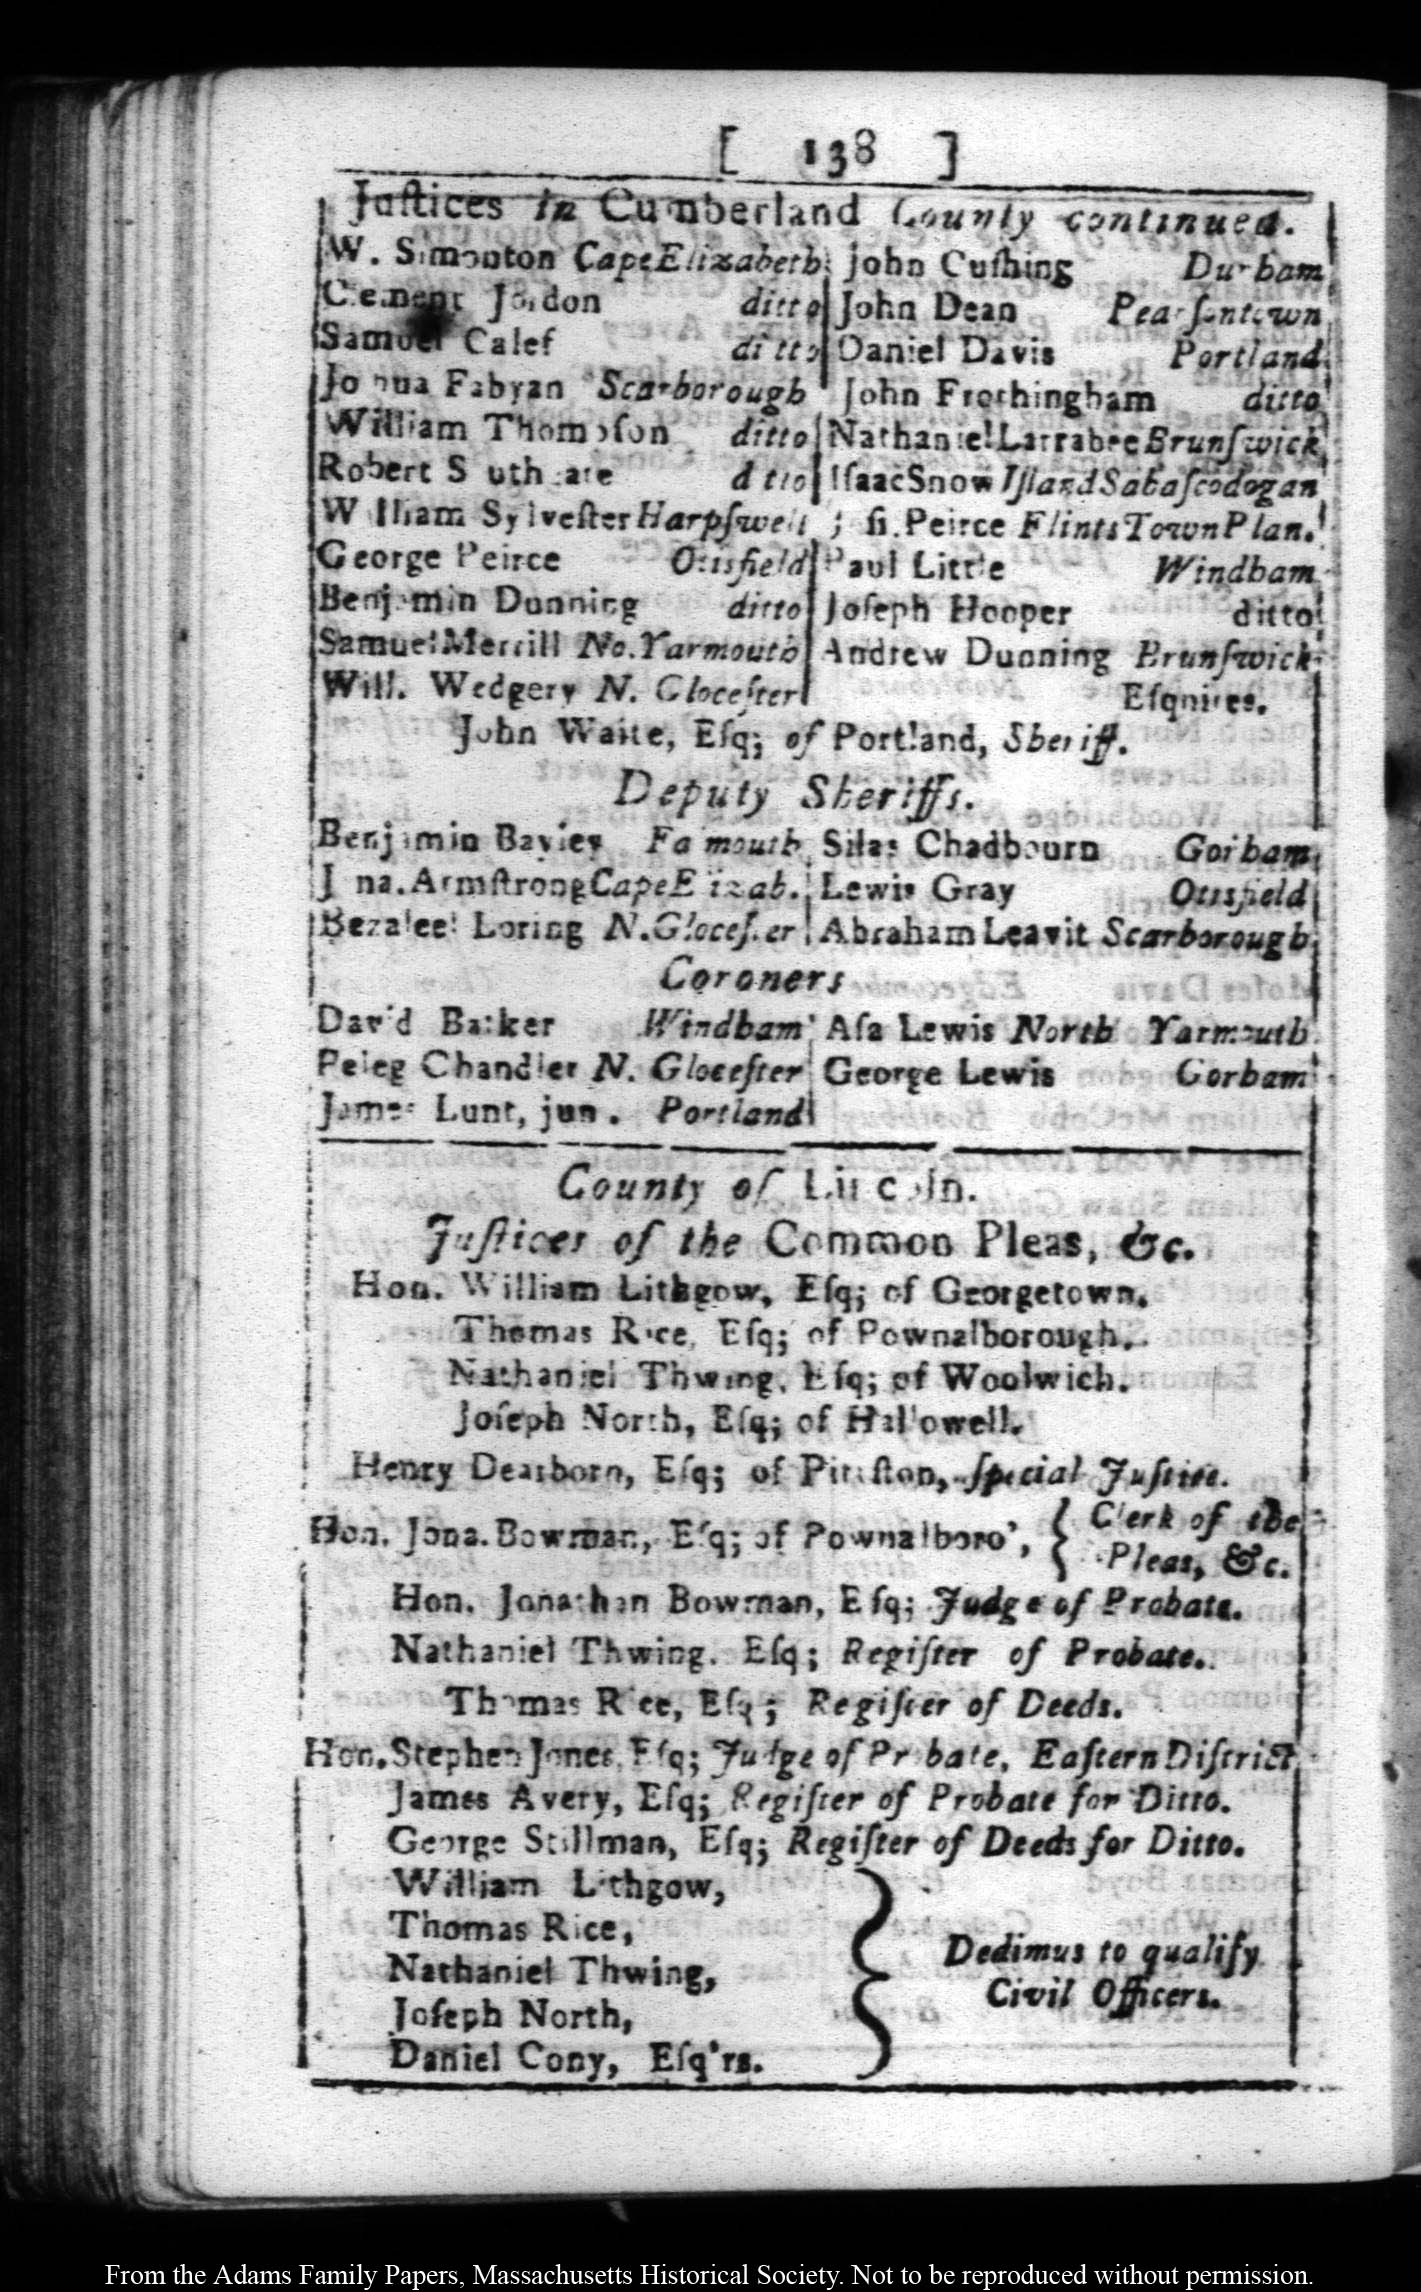 [ 138 ]
Juſtices in Cumberland County continued.
W. Simonton Cape Elizabeth
Clement Jordon ditto
Samuel Calef ditto
Joſhua Fabyan Scarborough
William Thompſon ditto
Robert Southgate ditto
William Sylveſter Harpſwell
George Peirce Otisfield
Benjamin Dunning ditto
Samuel Merrill No. Yarmouth
Will. Wedgery N. Gloceſter
John Cuſhing Durham
John Dean Pearſontown
Daniel Davis Portland
John Frothingham ditto
Nathaniel Larrabee Brunſwick
Iſaac Snow Iſland Sabaſcodogan
Peirce Flints Town Plan.
Paul Little Windham
Joſeph Hooper ditto
Andrew Dunning Brunſwick
Eſquires.
John Waite, Eſq; of Portland, Sheriff.
Deputy Sheriffs.
Benjamin Bayley Falmouth
Jona. Armſtrong Cape Elizab.
Bezaleel Loring N. Gloceſter
Silas Chadbourn Gorham
Lewis Gray Otisfield
Abraham Leavit Scarborough
Coroners
David Barker Windham
Peleg Chandler N. Gloceſter
James Lunt, jun. Portland
Aſa Lewis North Yarmouth
George Lewis Gorham
County of Lincoln.
Juſtices of the Common Pleas, &c.
Hon. William Lithgow, Eſq; of Georgetown.
Thomas Rice, Eſq; of Pownalborough.
Nathaniel Thwing, Eſq; of Woolwich.
Joſeph North, Eſq; of Hallowell.
Henry Dearborn, Eſq; of Pittſton, ſpecial Juſtice.
Hon. Jona. Bowman, Eſq; of Pownalboro', { Clerk of the
Pleas, &c.
Hon. Jonathan Bowman, Eſq; Judge of Probate.
Nathaniel Thwing, Eſq; Regiſter of Probate.
Thomas Rice, Eſq; Regiſter of Deeds.
Hon. Stephen Jones, Eſq; Judge of Probate, Eaſtern Diſtrict
James Avery, Eſq; Regiſter of Probate for Ditto.
George Stillman, Eſq; Regiſter of Deeds for Ditto.
William Lithgow,
Thomas Rice,
Nathaniel Thwing,
Joſeph North,
Daniel Cony, Eſq'rs.
Dedimus to qualify
Civil Officers.
From the Adams Family Papers, Massachusetts Historical Society. Not to be reproduced without permission.